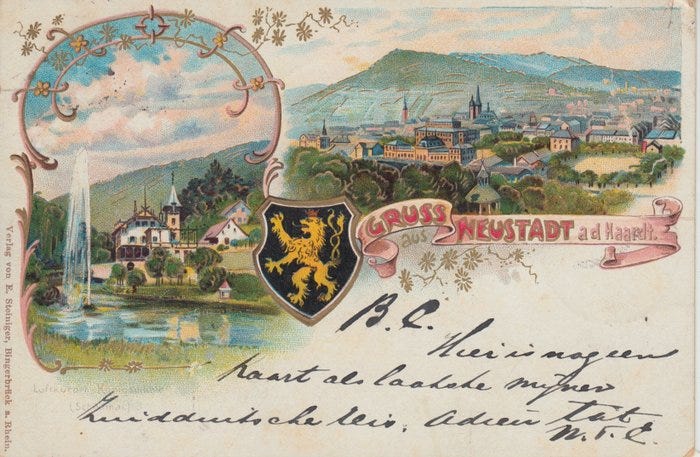 GRUSS
aus NEUSTADT a d Haardt.
Luftkurort
Verlag von E. Steiniger, Bingerbrück a. Rhein.
B. C.
Hier is nog een
kaart als laatste mijner
Zuidduitsche reis. Adieu tat
N. T. C.